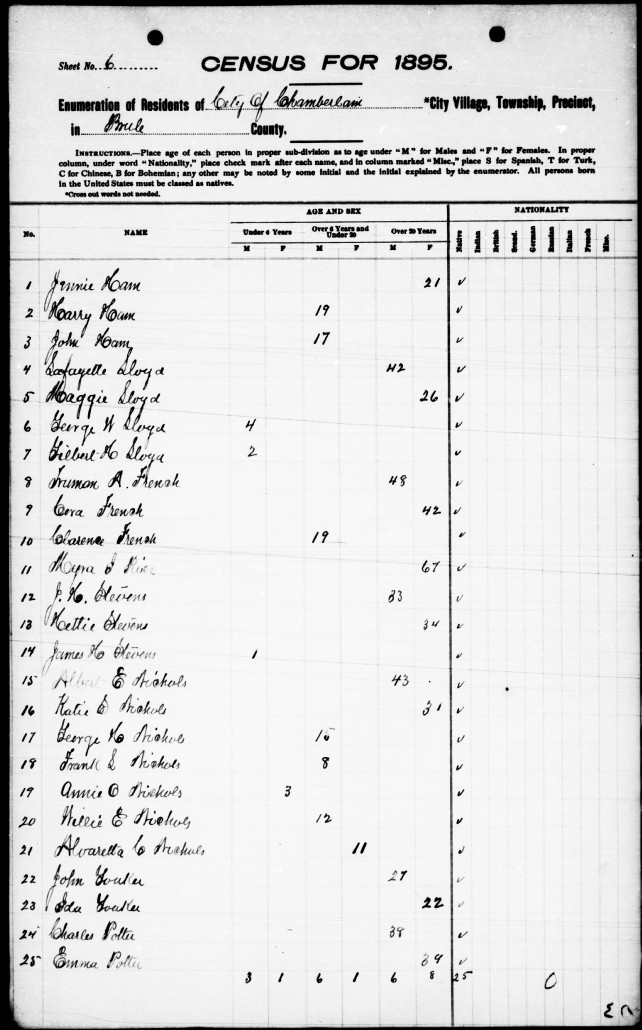 Sheet No. 6
CENSUS FOR 1895.
Enumeration of Residents of City Of Chamberlain *City Village, Township, Precinct,
in Brule County.
INSTRUCTIONS.—Place age of each person in proper sub-division as to age under "M" for Males and "F" for Females. In proper
column, under word "Nationality," place check mark after each name, and in column marked "Misc.," place S for Spanish, T for Turk,
C for Chinese, B for Bohemian; any other may be noted by some initial and the initial explained by the enumerator. All persons born
in the United States must be classed as natives.
*Cross out words not needed.
AGE AND SEX NATIONALITY
No. NAME Under 6 Years Over 6 Years and Under 20 Over 20 Years Native Indian British Scand. German Russian Italian French Misc.
M F M F M F
1 Jennie Ham 21 ✓
2 Harry Ham 19 ✓
3 John Ham 17 ✓
4 Lafayette Lloyd 42 ✓
5 Maggie Lloyd 26 ✓
6 George W Lloyd 4 ✓
7 Gilbert H Lloyd 2 ✓
8 Truman A. French 48 ✓
9 Cora French 42 ✓
10 Clarence French 19 ✓
11 Myra 67 ✓
12 J. H. Stevens 33 ✓
13 Nettie Stevens 34 ✓
14 James H Stevens 1 ✓
15 Albert E Nichols 43 ✓
16 Katie E Nichols 31 ✓
17 George H Nichols 15 ✓
18 Frank L Nichols 8 ✓
19 Annie O Nichols 3 ✓
20 Willie E Nichols 12 ✓
21 Alvaretta C Nichols 11 ✓
22 John 27 ✓
23 Ida 22 ✓
24 Charles Potter 38 ✓
25 Emma Potter 39 ✓
3 1 6 1 6 8 25 0